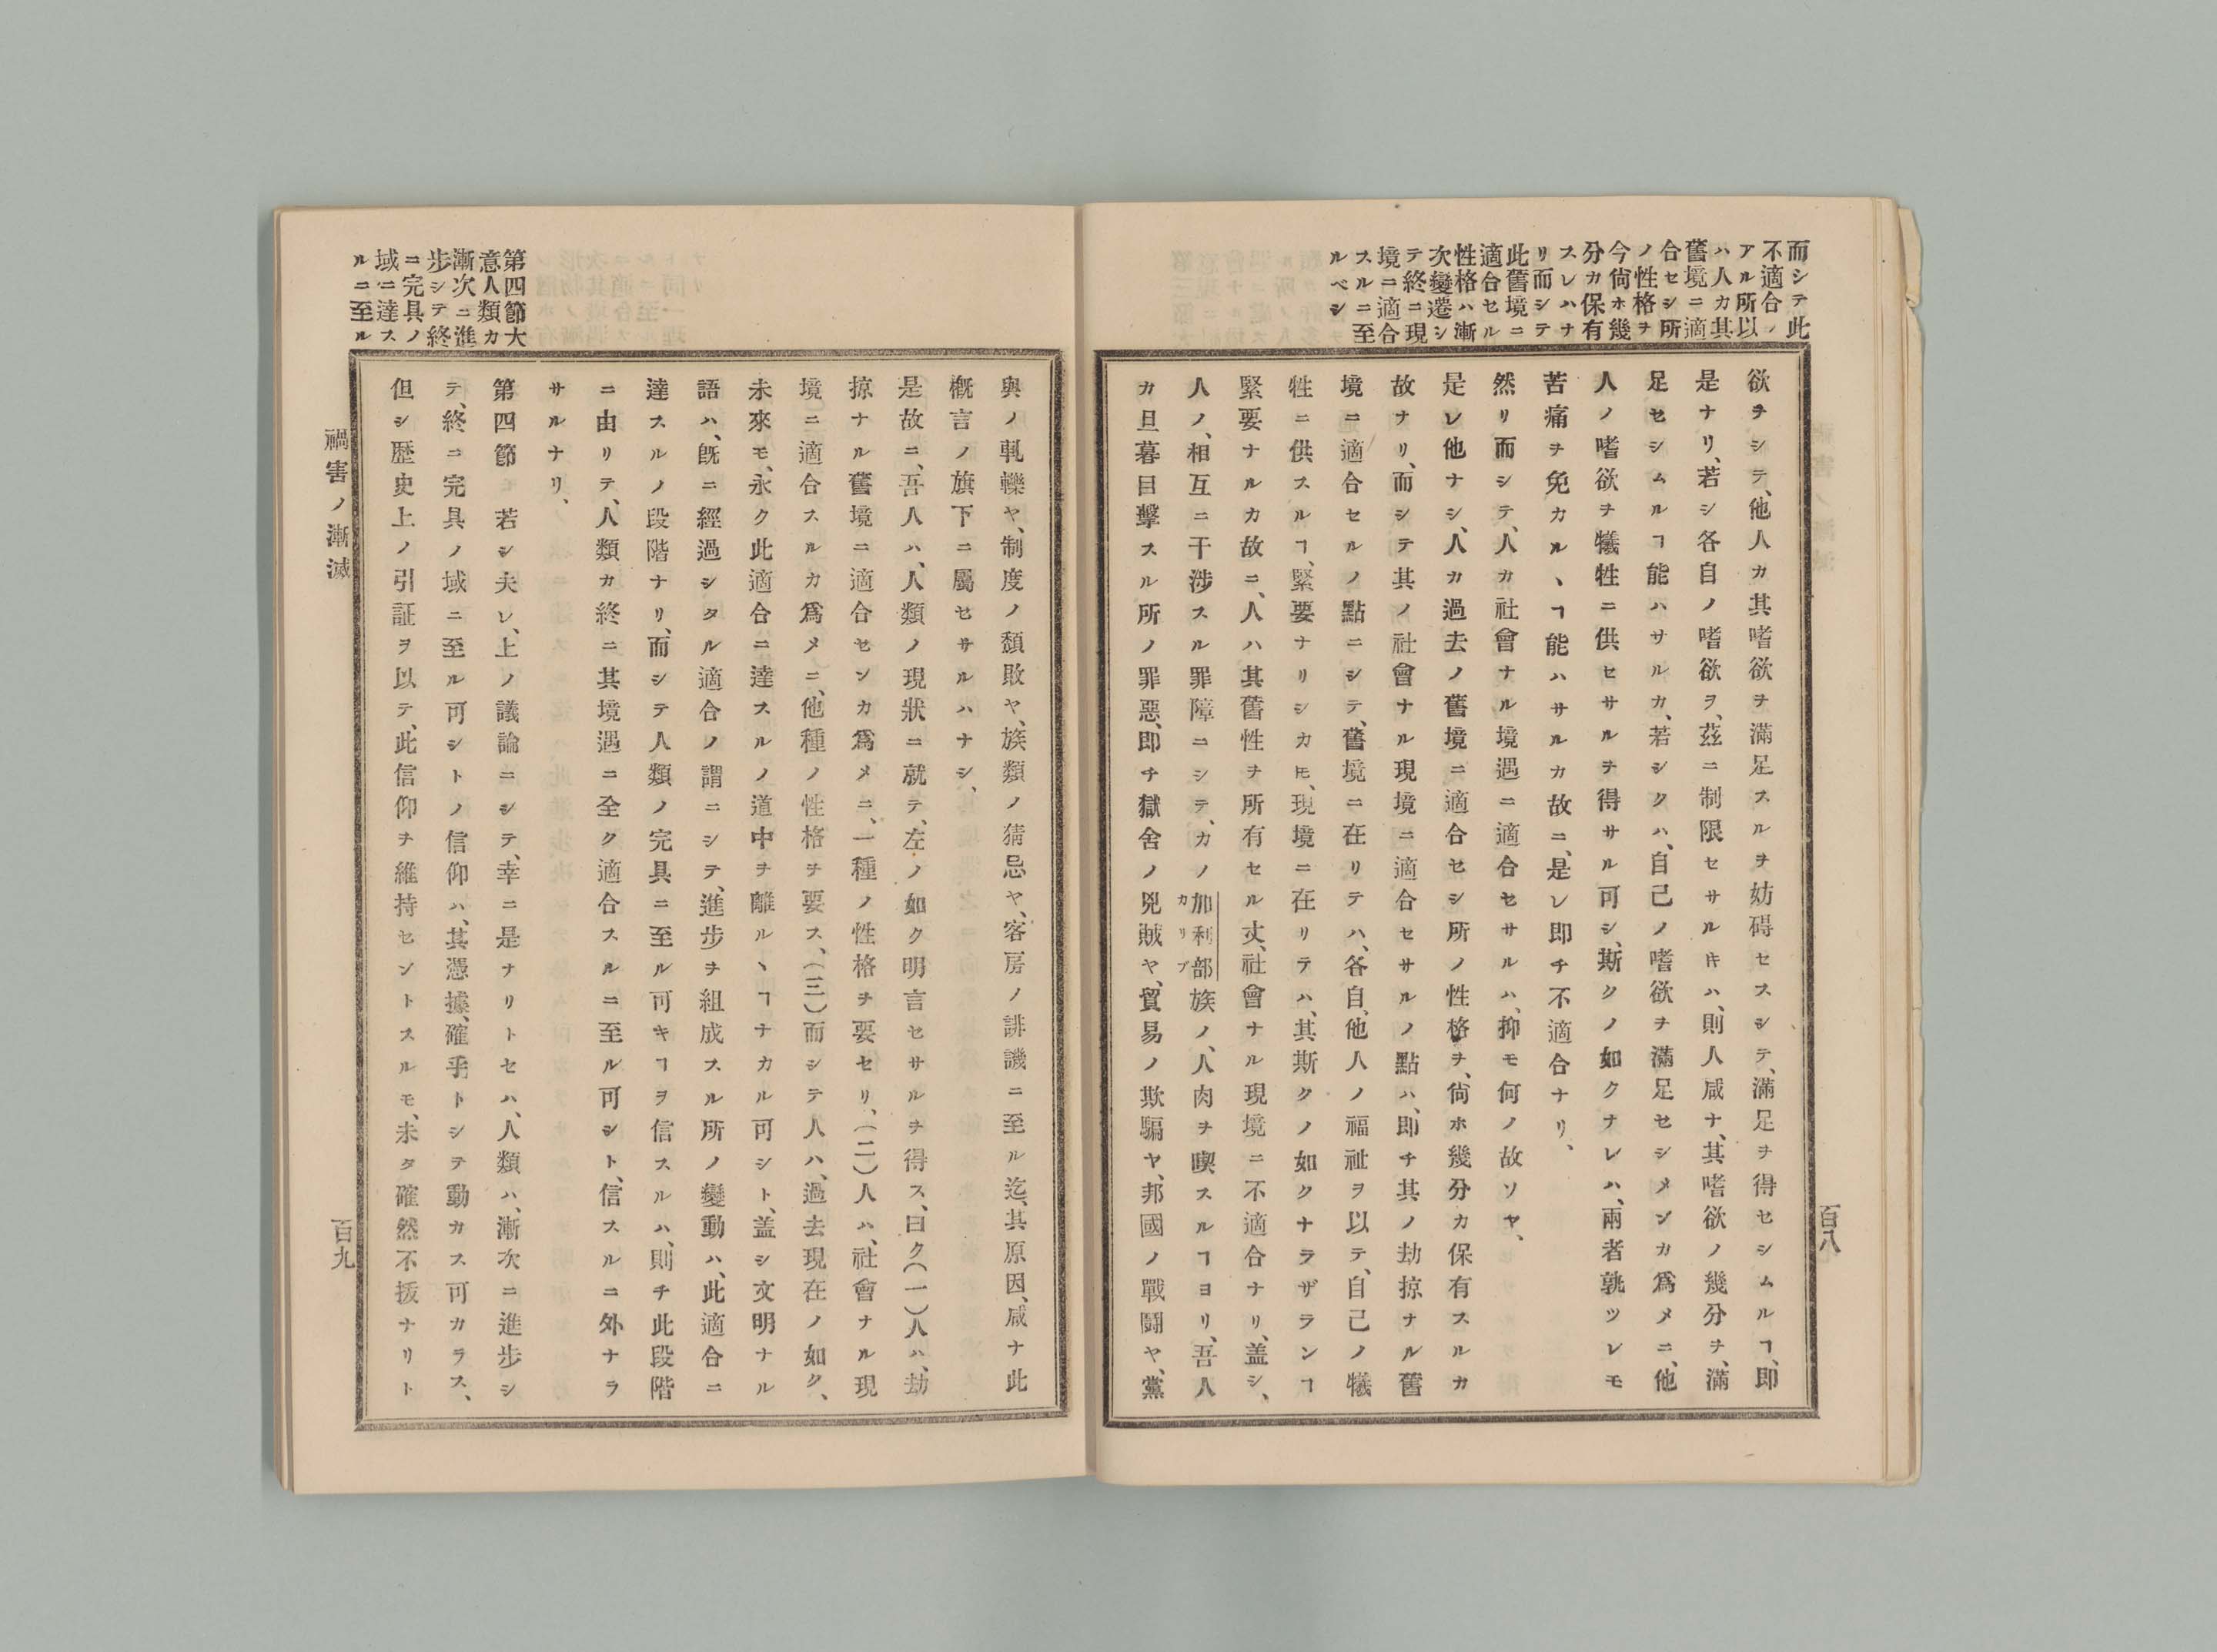 而シテ此
不適合ノ
アル所以
ハ人カ其
舊境ニ適
合セシ所
ノ性格ヲ
今尙ホ幾
分カ保有
スレハナ
リ而シテ
此舊境ニ
適合セル
性格ハ漸
次變遷シ
テ終ニ現
境ニ適合
スルニ至
ルベシ
欲ヲシテ、他人カ其嗜欲ヲ滿足スルヲ妨碍セスシテ、滿足ヲ得セシムルヿ、即
是ナリ、若シ各自ノ嗜欲ヲ、茲ニ制限セサルキハ、則人咸ナ、其嗜欲ノ幾分ヲ、滿
足セシムルヿ能ハサルカ、若シクハ、自己ノ嗜欲ヲ滿足セシメンカ爲メニ、他
人ノ嗜欲ヲ犧牲ニ供セサルヲ得サル可シ、斯クノ如クナレハ、兩者孰ツレモ
苦痛ヲ免カルヽヿ能ハサルカ故ニ、是レ即チ不適合ナリ、
然リ而シテ、人カ社會ナル境遇ニ適合セサルハ、抑モ何ノ故ソヤ、
是レ他ナシ、人カ過去ノ舊境ニ適合セシ所ノ性格ヲ、尙ホ幾分カ保有スルカ
故ナリ、而シテ其ノ社會ナル現境ニ適合セサルノ點ハ、即チ其ノ劫掠ナル舊
境ニ適合セルノ點ニシテ、舊境ニ在リテハ、各自、他人ノ福祉ヲ以テ、自己ノ犧
牲ニ供スルヿ、緊要ナリシカ𪜈、現境ニ在リテハ、其斯クノ如クナラザランヿ
緊要ナルカ故ニ、人ハ其舊性ヲ所有セル丈、社會ナル現境ニ不適合ナリ、盖シ、
人ノ、相互ニ干涉スル罪障ニシテ、カノ加利部族ノ、人肉ヲ喫スルヿヨリ、吾人
カリブ
カ旦暮目擊スル所ノ罪惡、即チ獄舍ノ兇賊ヤ、貿易ノ欺騙ヤ、邦國ノ戰鬪ヤ、黨
百八
第四節大
意人類カ
漸次ニ進
步シテ終
ニ完具ノ
域ニ達ス
ルニ至ル
與ノ軋轢ヤ、制度ノ頽敗ヤ、族類ノ猜忌ヤ、客房ノ誹譏ニ至ル迄、其原因、咸ナ此
槪言ノ旗下ニ屬セサルハナシ、
是故ニ、吾人ハ、人類ノ現狀ニ就テ、左ノ如ク明言セサルヲ得ス、曰ク(一)人ハ、劫
掠ナル舊境ニ適合センカ爲メニ、一種ノ性格ヲ要セリ、(二)人ハ、社會ナル現
境ニ適合スルカ爲メニ、他種ノ性格ヲ要ス、(三)而シテ人ハ、過去現在ノ如ク、
未來モ、永ク此適合ニ達スルノ道中ヲ離ルヽヿナカル可シト、盖シ文明ナル
語ハ、旣ニ經過シタル適合ノ謂ニシテ、進步ヲ組成スル所ノ變動ハ、此適合ニ
達スルノ段階ナリ、而シテ人類ノ完具ニ至ル可キヿヲ信スルハ、則チ此段階
ニ由リテ、人類カ終ニ其境遇ニ全ク適合スルニ至ル可シト、信スルニ外ナラ
サルナリ、
第四節 若シ夫レ、上ノ議論ニシテ、幸ニ是ナリトセハ、人類ハ、漸次ニ進步シ
テ、終ニ完具ノ域ニ至ル可シトノ信仰ハ、其憑據、確乎トシテ動カス可カラス、
但シ歷史上ノ引証ヲ以テ、此信仰ヲ維持セントスルモ、未タ確然不拔ナリト
禍害ノ漸滅
百九